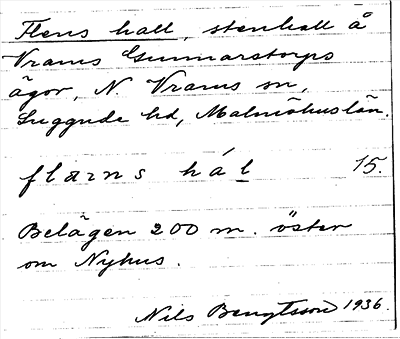 Flens hall, stenhall å
Vrams Gunnarstorps
ägor, N. Vrams sn,
Luggude hd, Malmöhus län.
flæns hál 15.
Belägen 200 m. öster
om Nyhus.
Nils Bengtsson 1936.